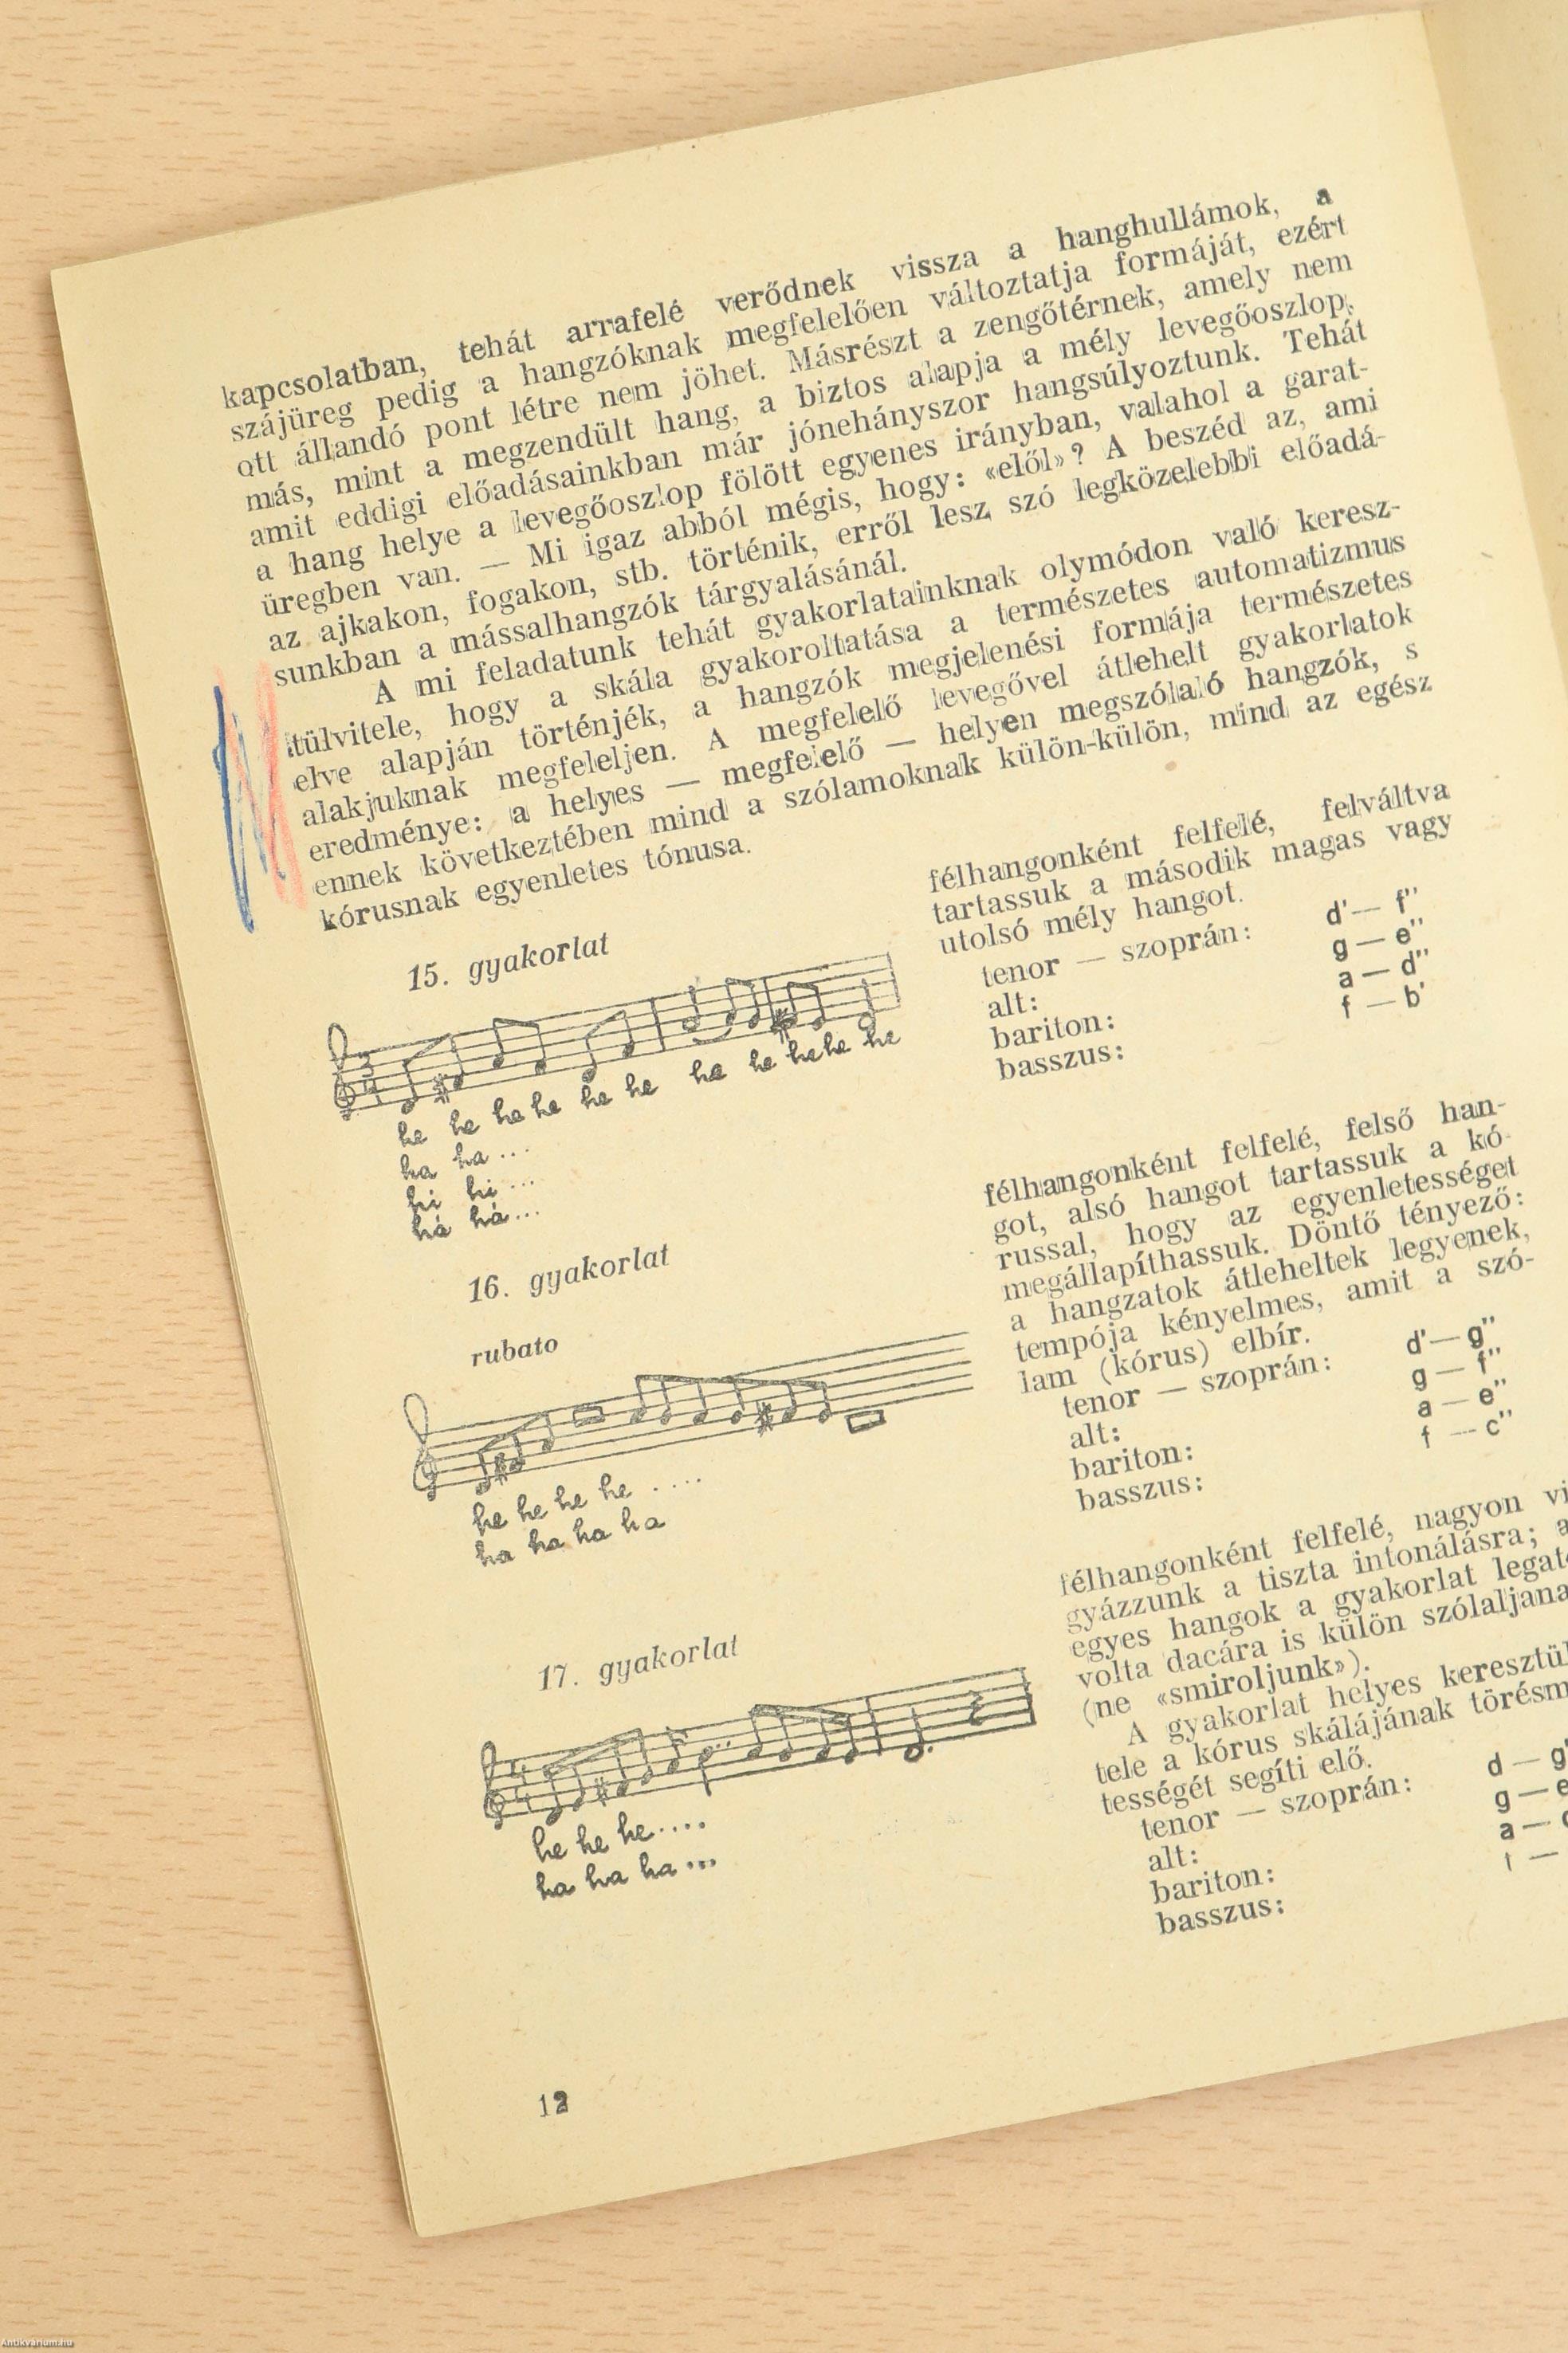 kapcsolatban, tehát arrafelé verődnek vissza a hanghullámok, a
szájüreg pedig a hangzóknak megfelelően változtatja formáját, ezért
ott állandó pont létre nem jöhet. Másrészt a zengőtérnek, amely nem
más, mint a megzendült hang, a biztos alapja a mély levegőoszlop,
amit eddigi előadásainkban már jónehányszor hangsúlyoztunk. Tehát
a hang helye a levegőoszlop fölött egyenes irányban, valahol a garat-
üregben van. — Mi igaz abból mégis, hogy: «elől»? A beszéd az, ami
az ajkakon, fogakon, stb. történik, erről lesz szó legközelebbi előadá-
sunkban a mássalhangzók tárgyalásánál.
A mi feladatunk tehát gyakorlatainknak olymódon való keresz-
tülvitele, hogy a skála gyakoroltatása a természetes automatizmus
elve alapján történjék, a hangzók megjelenési formája természetes
alakjuknak megfeleljen. A megfelelő levegővel átlehelt gyakorlatok
eredménye: a helyes — megfelelő — helyen megszólaló hangzók, s
ennek következtében mind a szólamoknak külön-külön, mind az egész
kórusnak egyenletes tónusa.
15. gyakorlat
he he he he he he he he he he he
ha ha ...
hi hi ...
há há ...
félhangonként felfelé, felváltva
tartassuk a második magas vagy
utolsó mély hangot.
tenor — szoprán: d' — f''
alt: g — e''
bariton: a — d''
basszus: f — b'
16. gyakorlat
rubato
he he he he ....
ha ha ha ha
félhangonként felfelé, felső han-
got, alsó hangot tartassuk a kó-
russal, hogy az egyenletességet
megállapíthassuk. Döntő tényező:
a hangzatok átleheltek legyenek,
tempója kényelmes, amit a szó-
lam (kórus) elbír.
tenor — szoprán: d' — g''
alt: g — f''
bariton: a — e''
basszus: f — c''
17. gyakorlat
he he he....
ha ha ha ...
félhangonként felfelé, nagyon vi
gyázzunk a tiszta intonálásra; a
egyes hangok a gyakorlat legato
volta dacára is külön szólaljana
(ne «smiroljunk»).
A gyakorlat helyes keresztül
tele a kórus skálájának törésm
tességét segíti elő.
tenor — szoprán: d — g'
alt: g — e
bariton: a —
basszus:
12
Antikvarium.hu